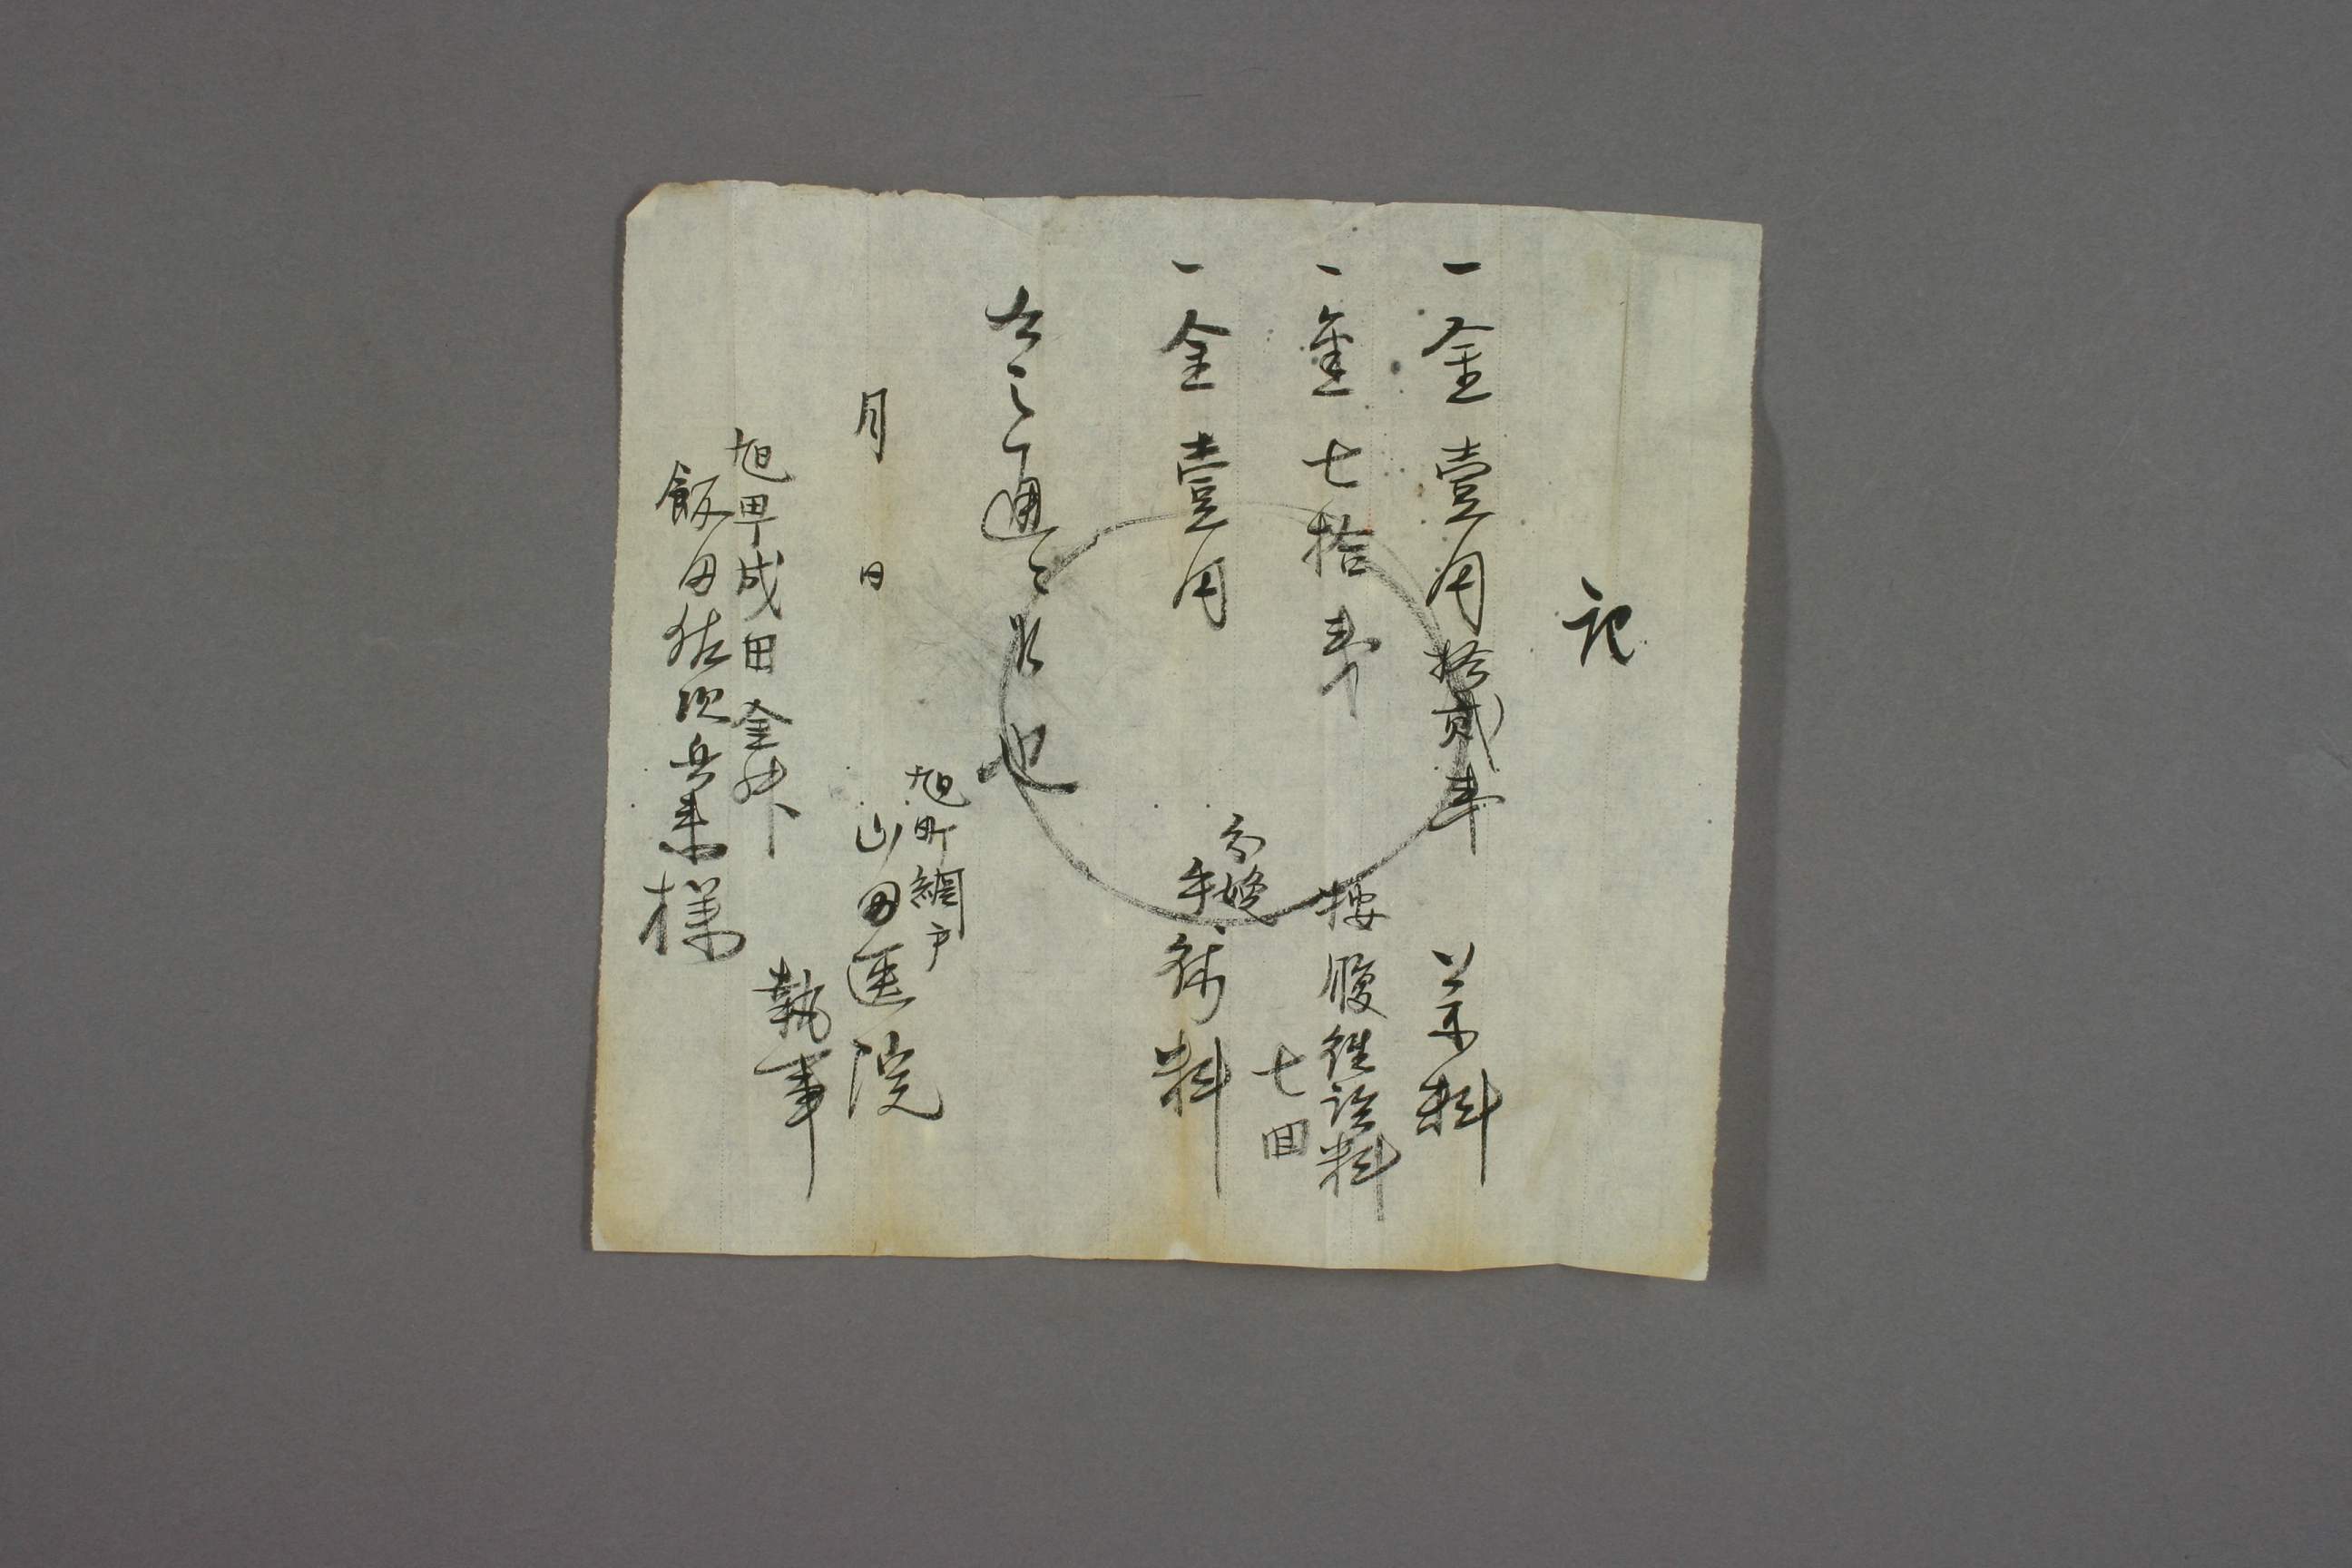 記
一金壹円拾貳銭 薬料
一金七拾銭 按腹往診料
七回
一金壹円 分娩手術料
右之通ニ候也
月 日
旭町網戸
山田医院
執事
旭町成田
飯田佐次兵衛様